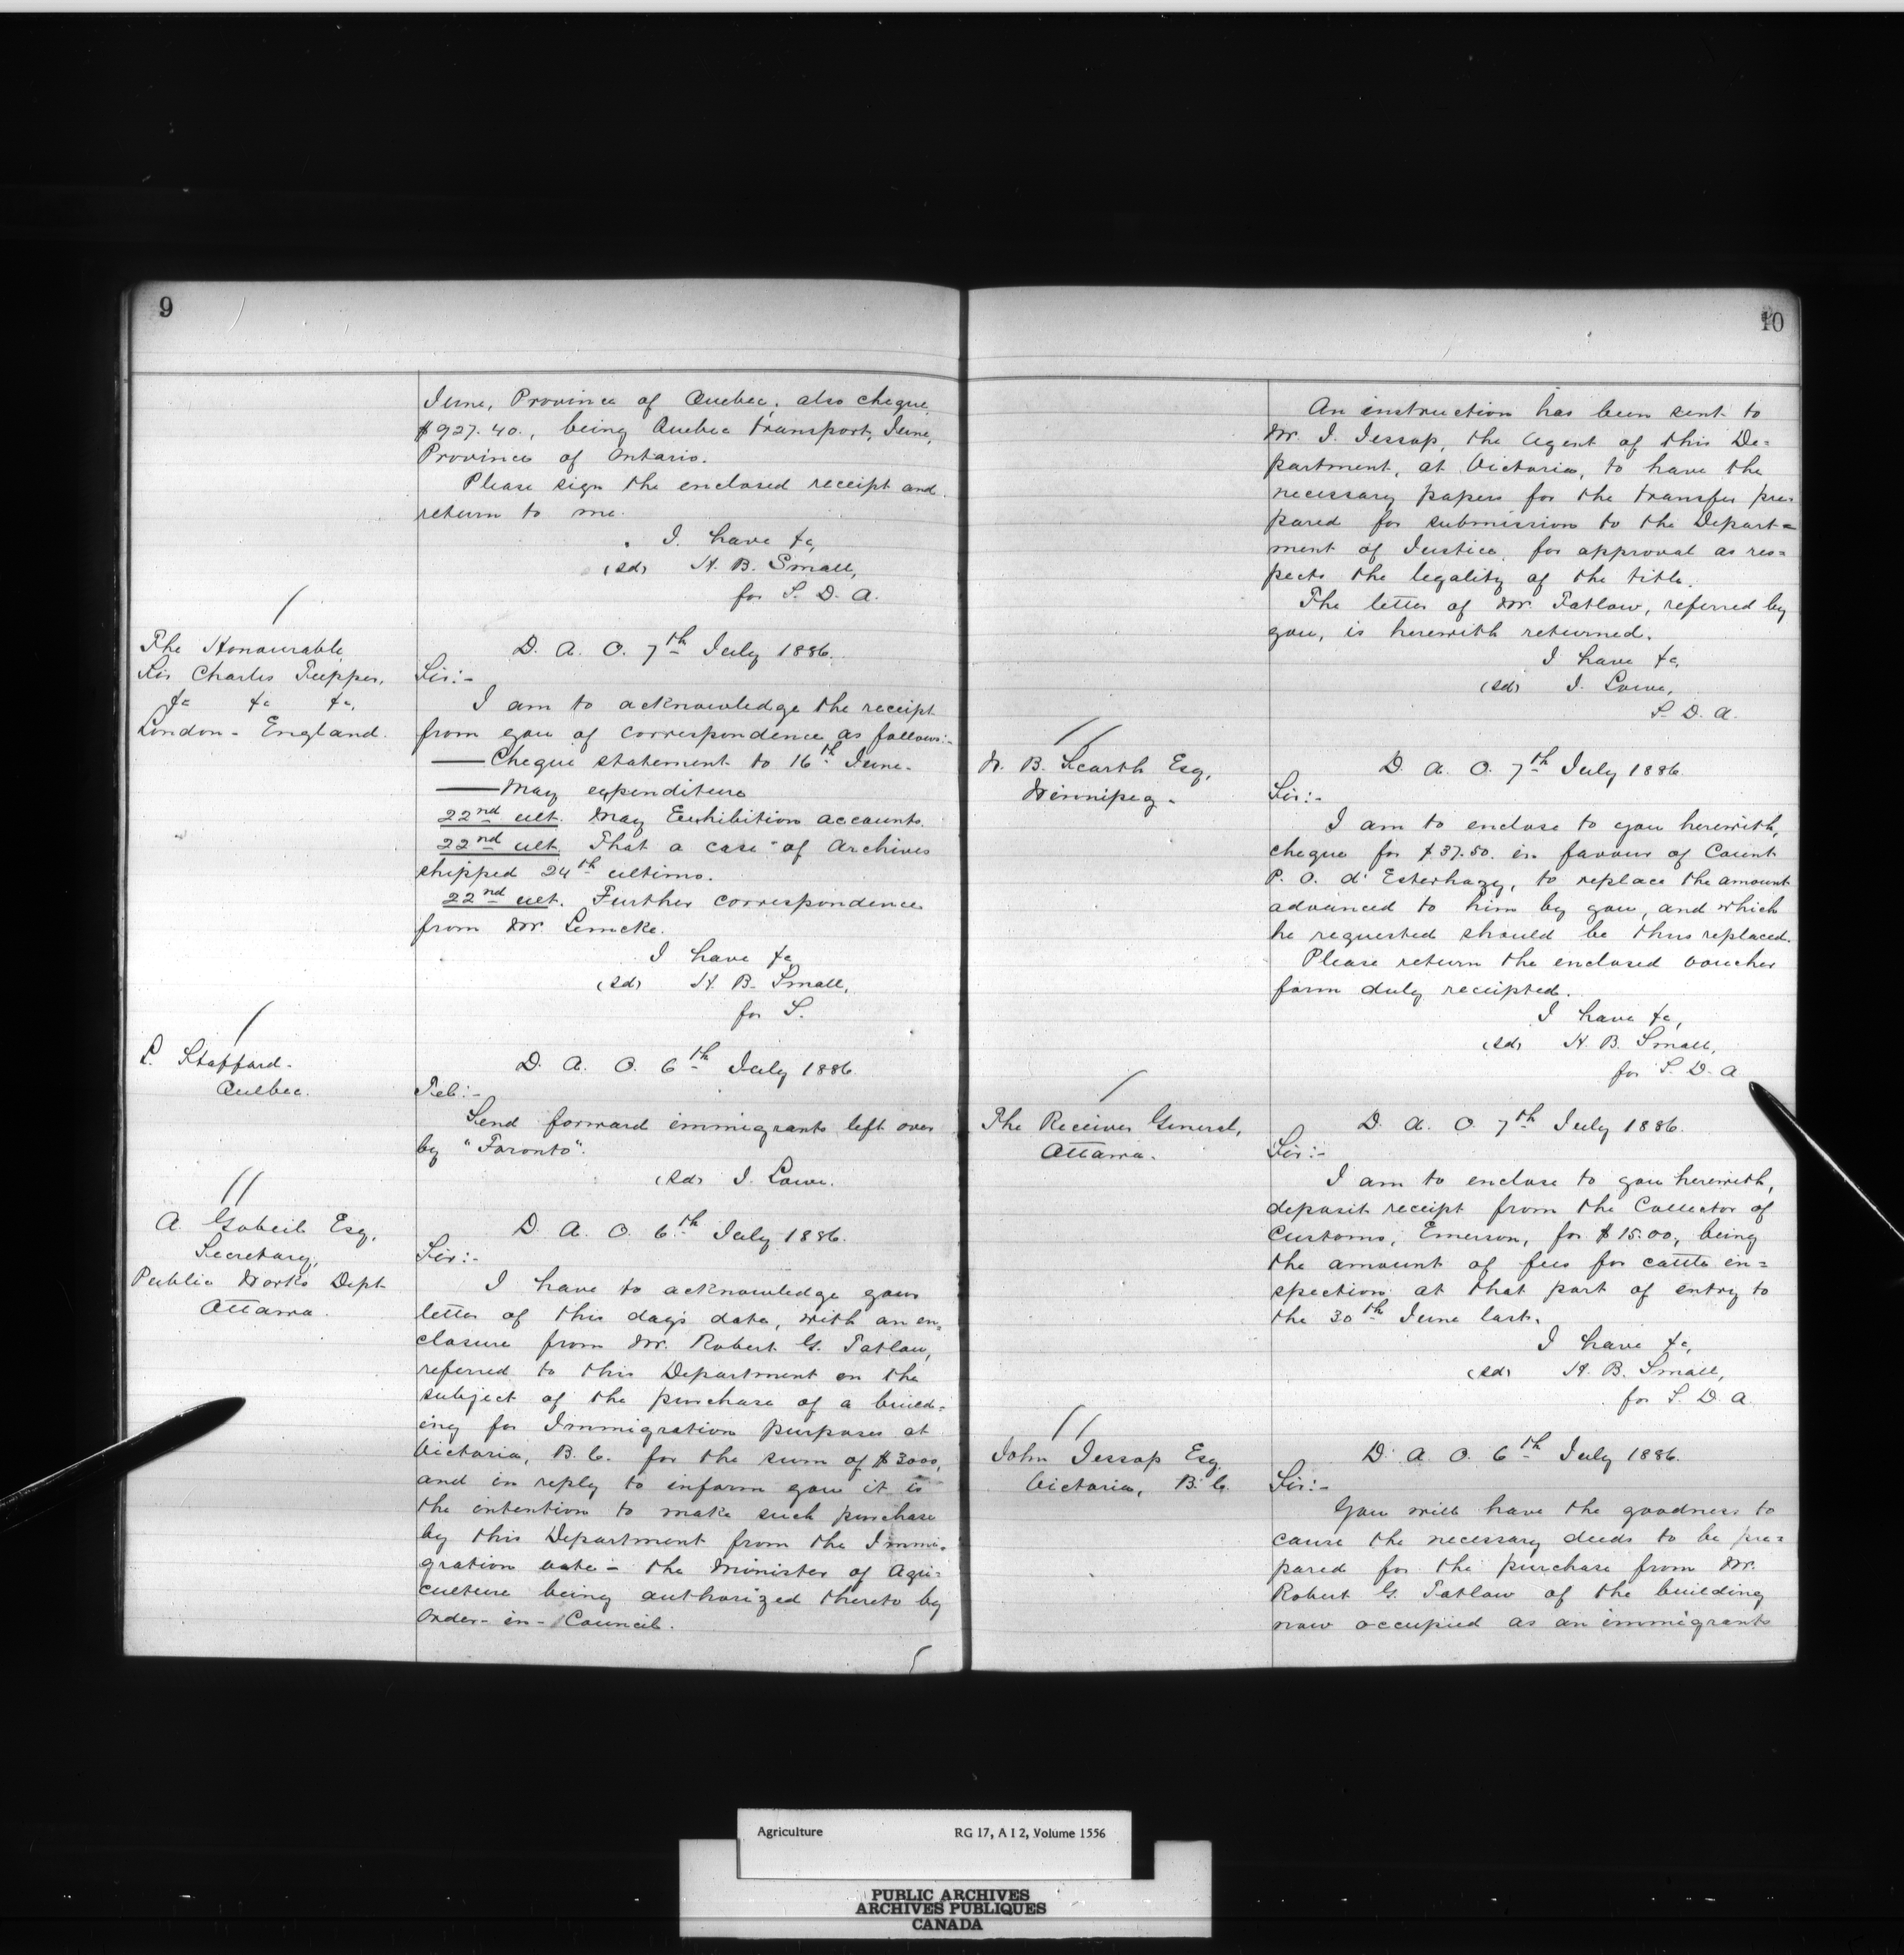 9
June, Province of Quebec; also cheque
$927.40., being Quebec transport, June,
Province of Ontario.
Please sign the enclosed receipt and
return to me.
I have &c,
(sd) H. B. Small,
for S. D. A.
The Honourable
Sir Charles Tupper,
&c &c &c,
London - England.
D. A. O. 7th July 1886.
Sir:-
I am to acknowledge the receipt
from you of correspondence as follows:-
—— Cheque statement to 16th June.
—— May expenditure
22nd ult. May Exhibition accounts.
22nd ult. That a case of Archives
shipped 24th ultimo.
22nd ult. Further correspondence
from Mr. Lemcke.
I have &c
(sd) H. B. Small,
for S.
L. Stafford.
Quebec.
D. A. O. 6th July 1886.
Tel:-
Send forward immigrants left over
by "Toronto".
(sd) J. Lowe.
A. Gobeil Esq,
Secretary,
Public Works Dept
Ottawa.
D. A. O. 6th July 1886.
Sir:-
I have to acknowledge your
letter of this day's date, with an en=
closure from Mr. Robert G. Tatlow,
referred to this Department on the
subject of the purchase of a build=
ing for Immigration purposes at
Victoria, B. C. for the sum of $3000,
and in reply to inform you it is
the intention to make such purchase
by this Department from the Immi=
gration vote - the Minister of Agri=
culture being authorized thereto by
Order-in-Council.
10
An instruction has been sent to
Mr. J. Jessop, the Agent of this De=
partment, at Victoria, to have the
necessary papers for the transfer pre=
pared for submission to the Depart=
ment of Justice, for approval as res=
pects the legality of the title.
The letter of Mr. Tatlow, referred by
you, is herewith returned.
I have &c,
(sd) J. Lowe,
S. D. A.
W. B. Scarth Esq,
Winnipeg.
D. A. O. 7th July 1886.
Sir:-
I am to enclose to you herewith,
cheque for $37.50. in favour of Count
P. O. d'Esterhazy, to replace the amount
advanced to him by you, and which
he requested should be thus replaced.
Please return the enclosed voucher
form duly receipted.
I have &c,
(sd) H. B. Small,
for S. D. A
The Receiver General,
Ottawa.
D. A. O. 7th July 1886.
Sir:-
I am to enclose to you herewith,
deposit receipt from the Collector of
Customs, Emerson, for $15.00, being
the amount of fees for cattle in=
spection at that port of entry to
the 30th June last.
I have &c,
(sd) H. B. Small,
for S. D. A
John Jessop Esq.
Victoria, B. C.
D. A. O. 6th July 1886.
Sir:-
You will have the goodness to
cause the necessary deeds to be pre=
pared for the purchase from Mr.
Robert G. Tatlow of the building
now occupied as an immigrants
Agriculture RG 17, A I 2, Volume 1556
PUBLIC ARCHIVES
ARCHIVES PUBLIQUES
CANADA